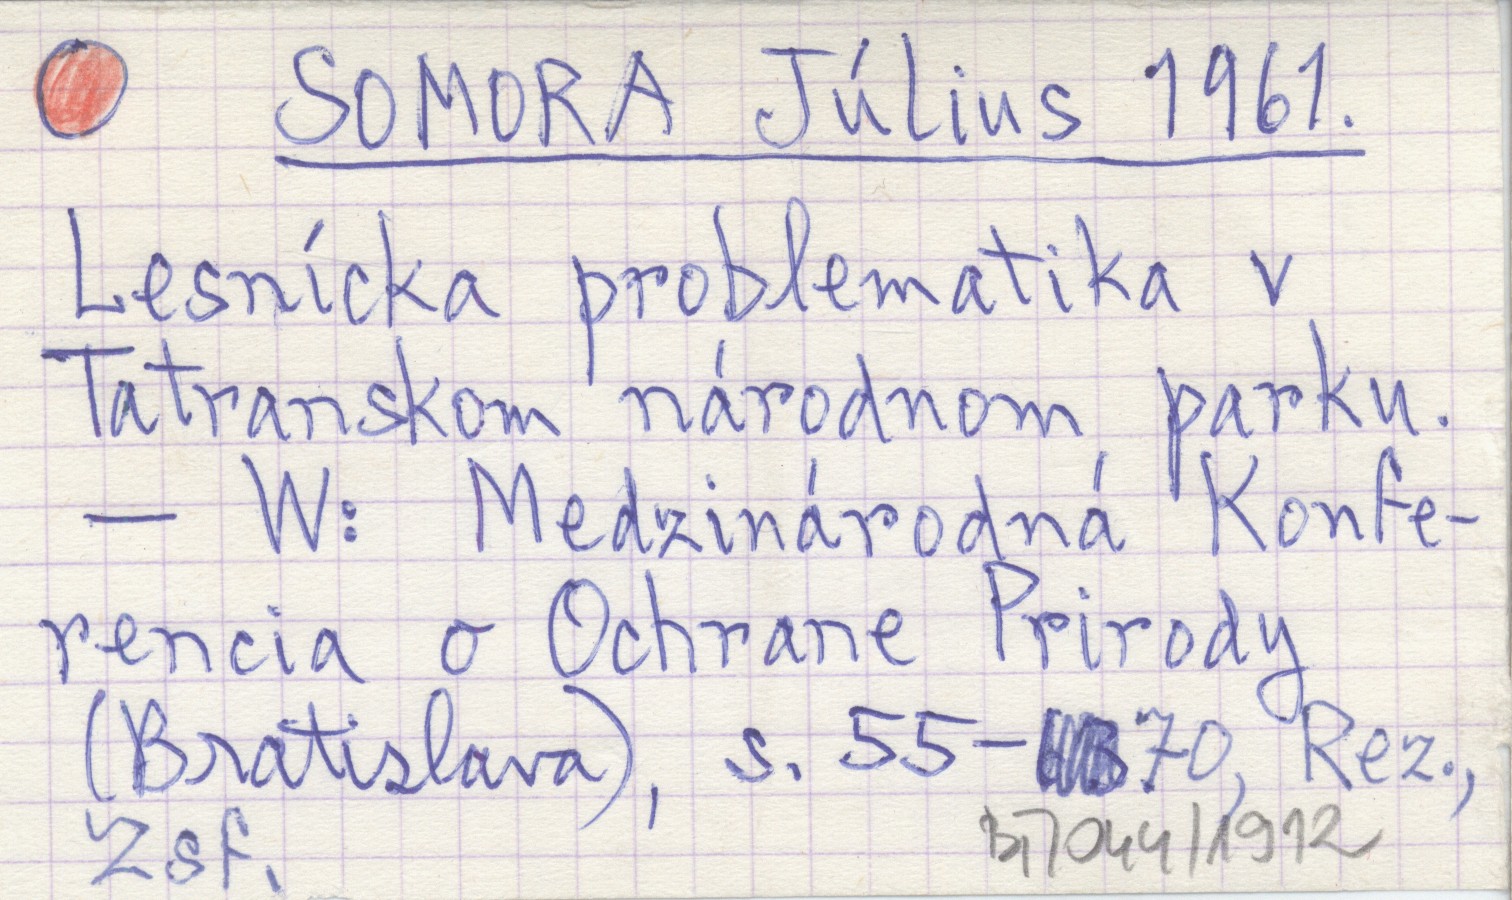 SOMORA Július 1961.
Lesnícka problematika v
Tatranskom národnom parku.
— W: Medzinárodná Konfe-
rencia o Ochrane Prirody
(Bratislava), s. 55-70, Rez.,
Zsf.